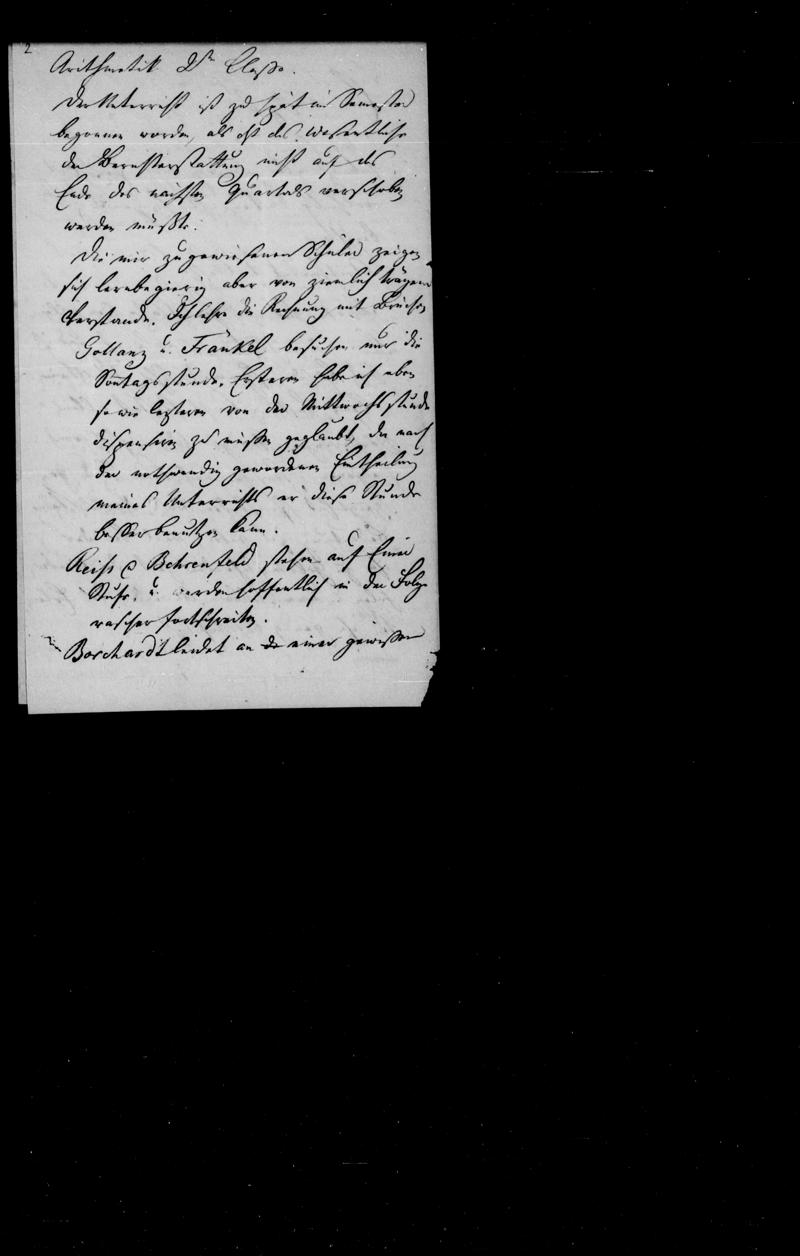 2
Arithmetik 2te Classe.
Der Unterricht ist zu spät im Semester
begonnen worden, als daß das Wesentliche
der Berichterstattung nicht auf das
Ende des nächsten Quartals verschoben
werden müßte.
Die mir zugewiesenen Schüler zeigen
sich lernbegierig aber von ziemlich trägem
Verstande. Ich lehre die Rechnung mit Brüchen
Gollanz u. Fränkel besuchen nur die
Sontagsstunde. Ersteren habe ich eben
so wie letzteren von der Mittwochsstunde
dispensiren zu müssen geglaubt, da nach
der nothwendig gewordenen Eintheilung
meines Unterrichts er diese Stunde
besser benutzen kann.
Reiß & Behrenfeld stehen auf Einer
Stufe, u. werden hoffentlich in der Folge
rascher fortschreiten.
Borchardt leidet an de einer gewissen